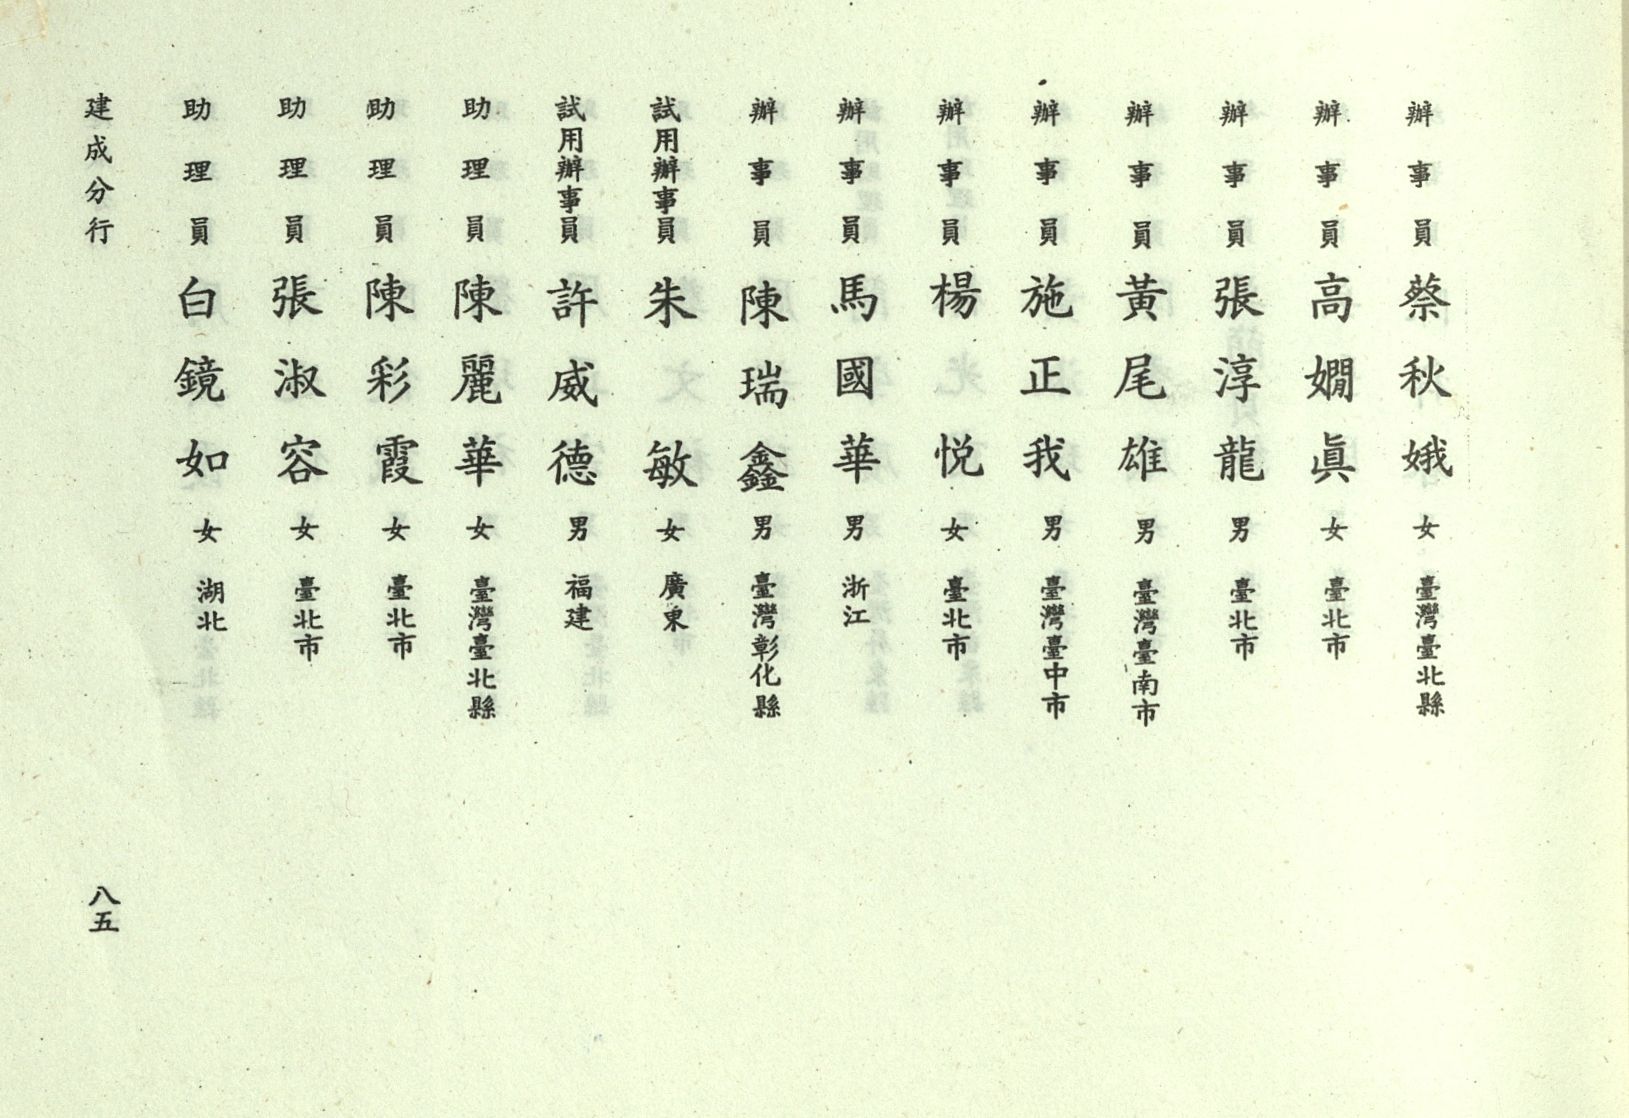 辦事員 蔡秋娥 女 臺灣臺北縣
辦事員 高嫺眞 女 臺北市
辦事員 張淳龍 男 臺北市
辦事員 黃尾雄 男 臺灣臺南市
辦事員 施正我 男 臺灣臺中市
辦事員 楊悅 女 臺北市
辦事員 馬國華 男 浙江
辦事員 陳瑞鑫 男 臺灣彰化縣
試用辦事員 朱敏 女 廣東
試用辦事員 許威德 男 福建
助理員 陳麗華 女 臺灣臺北縣
助理員 陳彩霞 女 臺北市
助理員 張淑容 女 臺北市
助理員 白鏡如 女 湖北
建成分行
八五